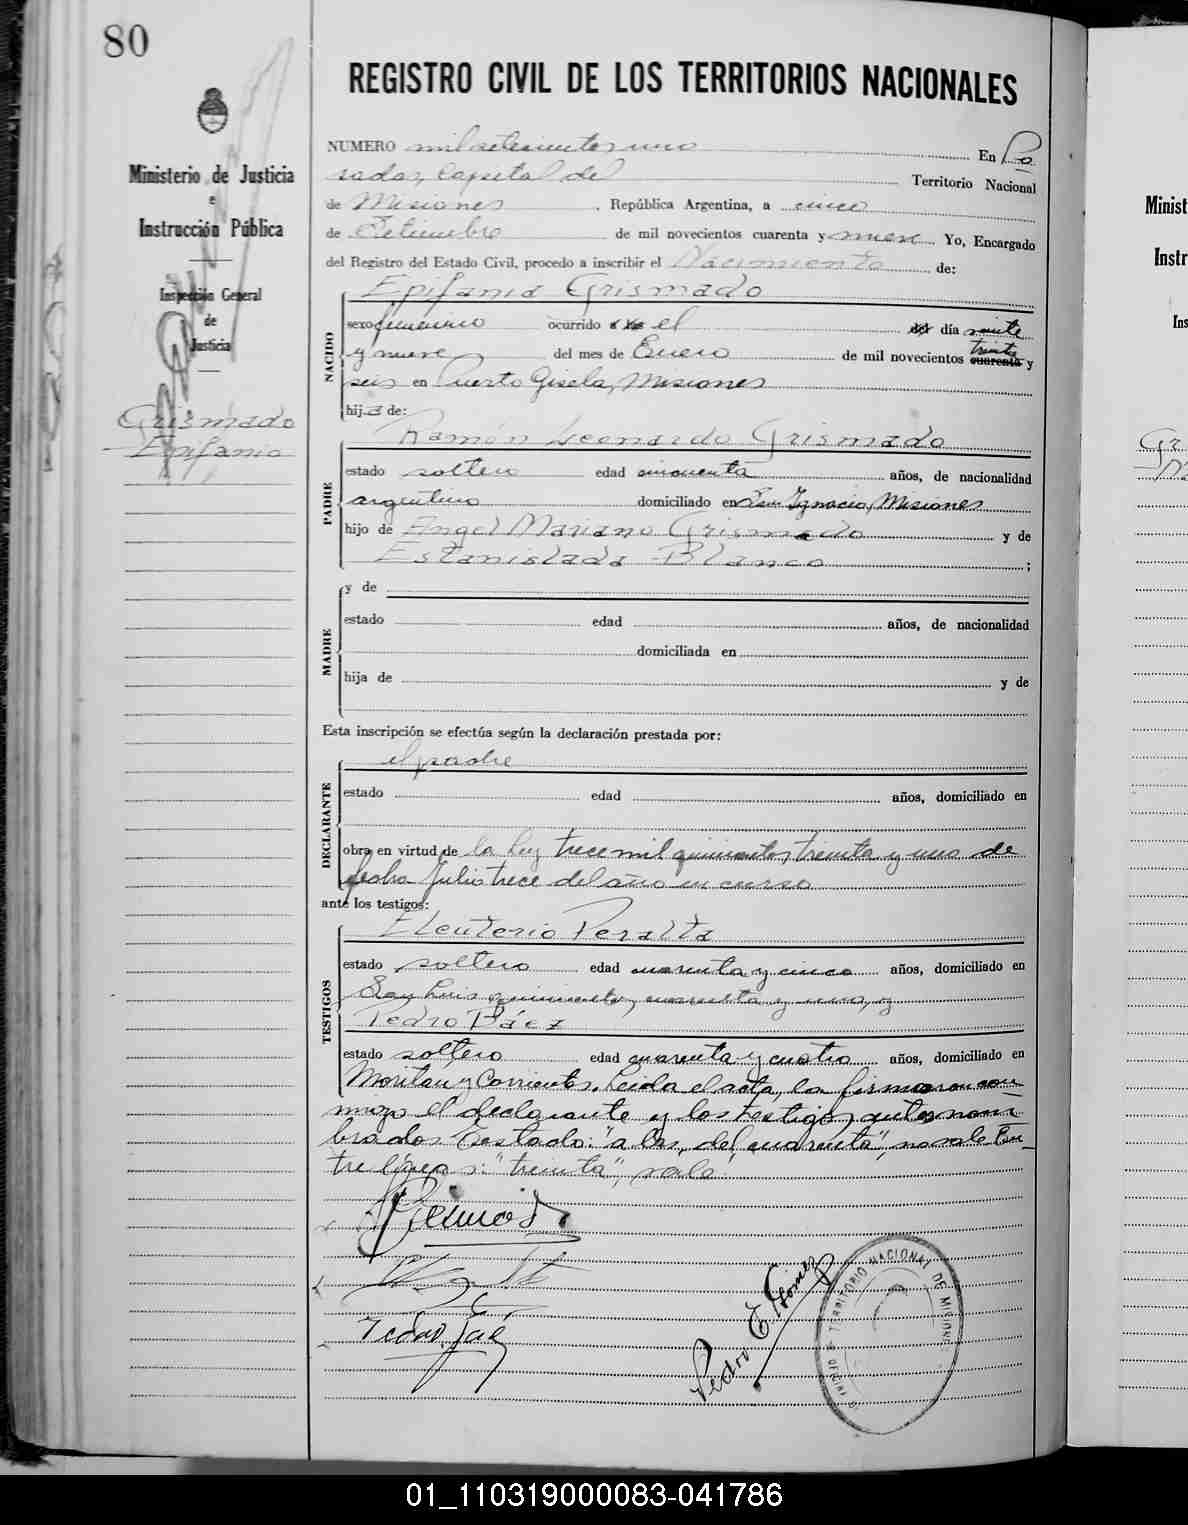 80
REGISTRO CIVIL DE LOS TERRITORIOS NACIONALES
Ministerio de Justicia
e
Instrucción Pública
Inspección General
de
Justicia
Grismado
Epifania
NUMERO mil setecientos uno En Po
sadas, Capital del Territorio Nacional
de Misiones, República Argentina, a cinco
de Setiembre de mil novecientos cuarenta y nueve Yo, Encargado
del Registro del Estado Civil, procedo a inscribir el Nacimiento de:
NACIDO
Epifania Grismado
sexo femenino ocurrido a las el del día veinte
y nueve del mes de Enero de mil novecientos cuarenta treinta y
seis en Puerto Gisela, Misiones
hija de:
PADRE
Ramón Leonardo Grismado
estado soltero edad cincuenta años, de nacionalidad
argentino domiciliado en San Ignacio, Misiones
hijo de Angel Mariano Grismado y de
Estanislada Blanco;
MADRE
y de
estado edad años, de nacionalidad
domiciliada en
hija de y de
Esta inscripción se efectúa según la declaración prestada por:
DECLARANTE
el padre
estado edad años, domiciliado en
obra en virtud de la Ley trece mil quinientos treinta y uno de
fecha Julio trece del año en curso
ante los testigos:
TESTIGOS
Eleuterio Peralta
estado soltero edad cuarenta y cinco años, domiciliado en
San Luis quinientos cuarenta y uno, y
Pedro Báez
estado soltero edad cuarenta y cuatro años, domiciliado en
Moritan y Corrientes. Leída el acta, la firmaron con
migo el declarante y los testigos antes nom
brados Testado: "a las, del, cuarenta", no vale En
tre líneas: "treinta", vale.
Pedro Báez
Pedro E. Gómez
TERRITORIO NACIONAL DE MISIONES
OFICINA
Minist
Instr
Ins
Gr
01_110319000083-041786